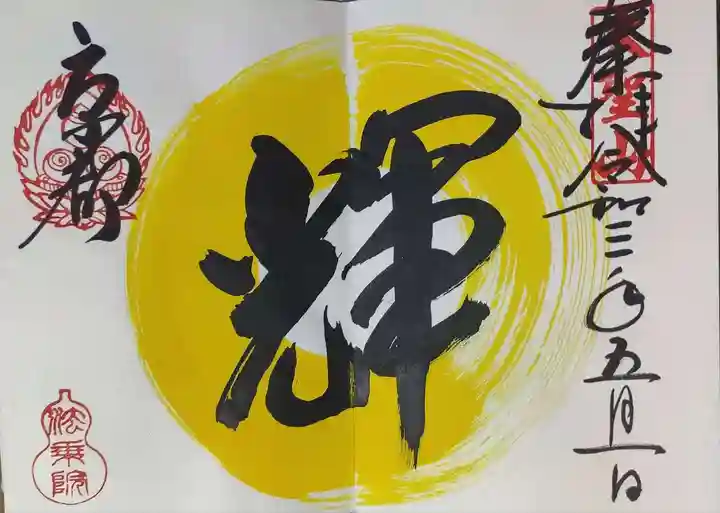 奉拝
令和三年五月一日
輝
京都
法乗院